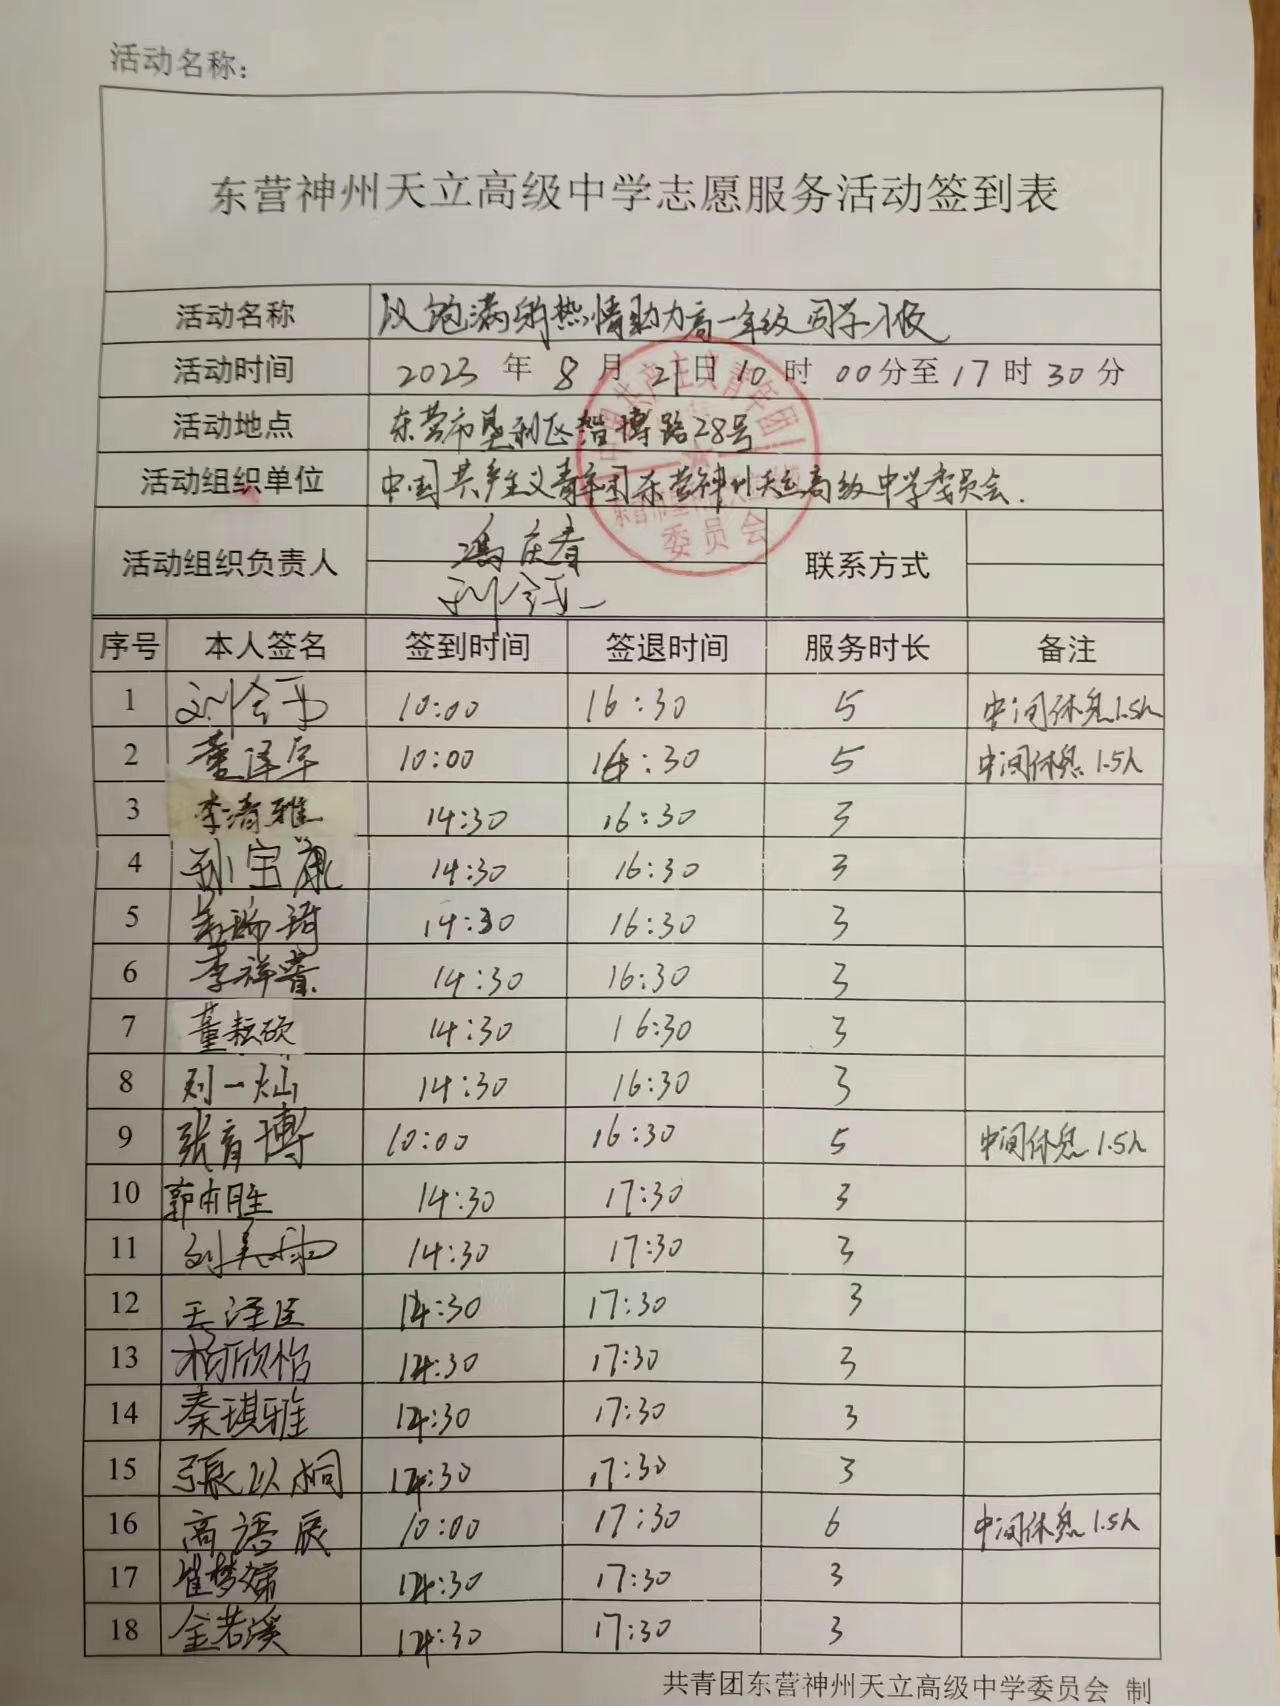 活动名称：
东营神州天立高级中学志愿服务活动签到表
活动名称 以饱满的热情助力高一年级同学入校
活动时间 2023 年 8 月 21 日 10 时 00 分至 17 时 30 分
活动地点 东营市垦利区智博路28号
活动组织单位 中国共产主义青年团东营神州天立高级中学委员会.
中国共产主义青年团
委员会
活动组织负责人 冯庆春 联系方式
序号 本人签名 签到时间 签退时间 服务时长 备注
1 刘会玉 10:00 16:30 5 中间休息1.5h
2 董泽军 10:00 16:30 5 中间休息 1.5h
3 李清雅 14:30 16:30 3
4 孙宝康 14:30 16:30 3
5 14:30 16:30 3
6 李祥 14:30 16:30 3
7 董耘硕 14:30 16:30 3
8 刘一灿 14:30 16:30 3
9 张育博 10:00 16:30 5 中间休息 1.5h
10 郭雨胜 14:30 17:30 3
11 刘美 14:30 17:30 3
12 王泽臣 14:30 17:30 3
13 柏欣怡 14:30 17:30 3
14 秦琪雅 14:30 17:30 3
15 張以桐 14:30 17:30 3
16 高语辰 10:00 17:30 6 中间休息 1.5h
17 崔梦 14:30 17:30 3
18 金若溪 14:30 17:30 3
共青团东营神州天立高级中学委员会 制